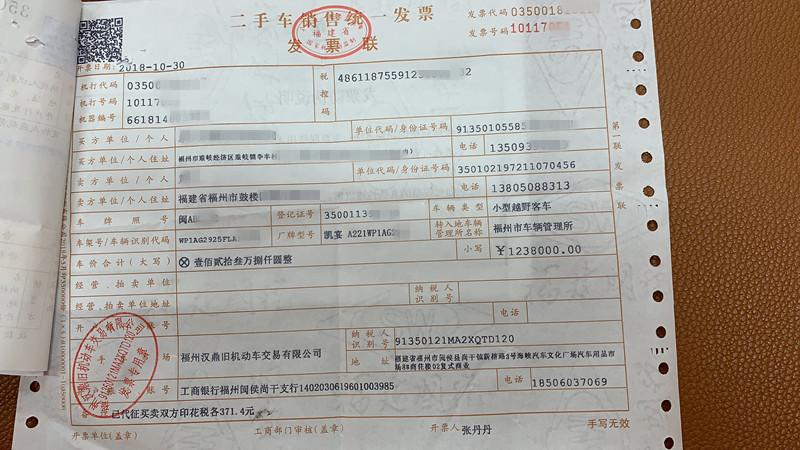 二手车销售统一发票
发票联
发票代码 03500181
发票号码 10117
开票日期: 2018-10-30
机打代码 0350
机打号码 10117
机器编号 661814
税控码 48611875591232 32
买方单位/个人
单位代码/身份证号码 91350105585
买方单位/个人住址 福州市
电话 13509
卖方单位/个人
单位代码/身份证号码 350102197211070456
卖方单位/个人住址 福建省福州市鼓楼
电话 13805088313
车牌照号 闽A
登记证号 35001135
车辆类型 小型越野客车
车架号/车辆识别代码 WP1AG2925FLA
厂牌型号 凯宴 A221WP1AG2
转入地车辆管理所名称 福州市车辆管理所
车价合计(大写) ⊗壹佰贰拾叁万捌仟圆整
小写 ¥1238000.00
经营、拍卖单位
经营、拍卖单位地址
纳税人识别号
开
电话
场 福州汉鼎旧机动车交易有限公司
纳税人识别号 91350121MA2XQTD120
地址 福建省福州市闽侯县尚干镇新榕路3号海峡汽车文化广场汽车用品市场8#商住楼02复式商业
账号 工商银行福州闽侯尚干支行1402030619601003985
电话 18506037069
已代征买卖双方印花税各371.4元
开票单位(盖章)
工商部门审核(盖章)
开票人 张丹丹
手写无效
第一发票联
福建省
91350121MA2XQTD120
发票专用章